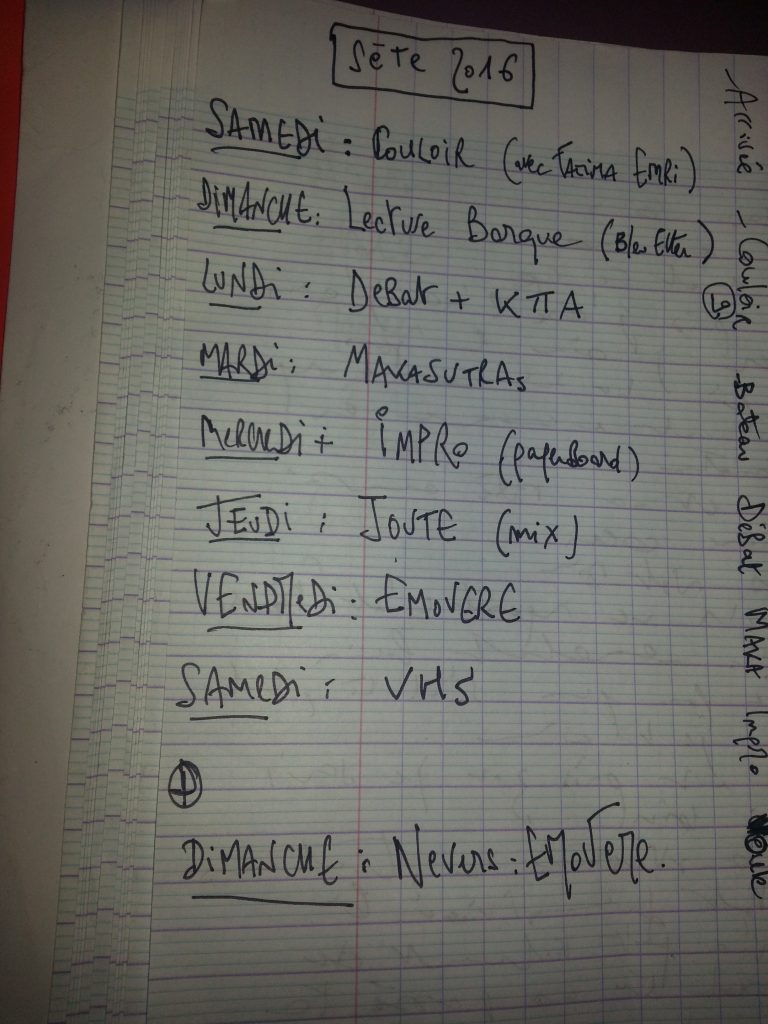 SèTe 2016
SAMEDi : COULOIR (avec FATIMA EMRi)
DIMANCHE : Lecture Barque (Bleu )
LUNDi : DeBat + KTTA
MARDi : MAKASUTRAs
MERCReDi + IMPRo (paperBoard)
JEUDi : JOUTE (mix)
VENDReDi : ÉMOVERE
SAMeDi : VHS
+
DiMANCHE : Nevers : EMOVeRe.
Arrivée - Couloir - Bateau Débat MAKA Impro